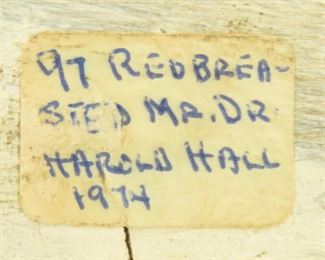 97 REDBREA-
STED MR. DR
HAROLD HALL
1974